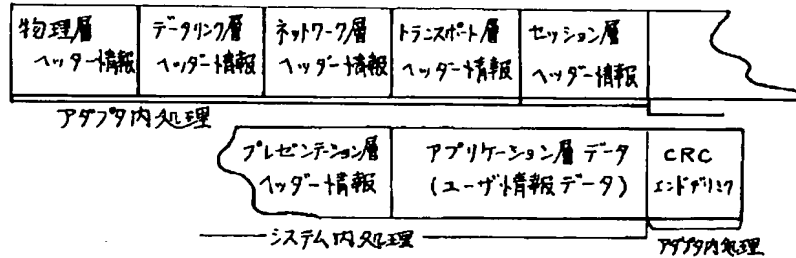 物理層
ヘッダー情報
データリンク層
ヘッダー情報
ネットワーク層
ヘッダー情報
トランスポート層
ヘッダー情報
セッション層
ヘッダー情報
アダプタ内処理
プレゼンテーション層
ヘッダー情報
アプリケーション層 データ
(ユーザ情報データ)
CRC
エンドデリミタ
システム内処理
アダプタ内処理